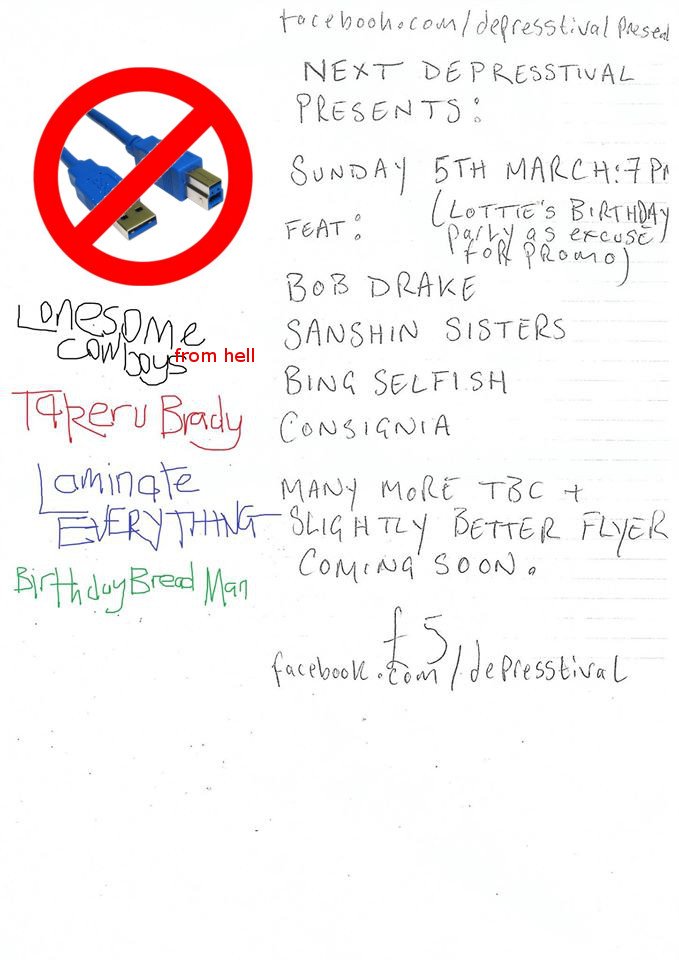 facebook.com/depresstival presen
NEXT DEPRESSTIVAL
PRESENTS:
SUNDAY 5TH MARCH: 7 PM
(LOTTIE'S BIRTHDAY
party as excuse
FOR PROMO)
FEAT:
BOB DRAKE
SANSHIN SISTERS
BING SELFISH
CONSIGNIA
MANY MORE TBC +
SLIGHTLY BETTER FLYER
COMING SOON.
£5
facebook.com/depresstival
LONESOME
COWboys from hell
TAKeru Brady
Laminate
EVERYTHING
Birthday Bread Man